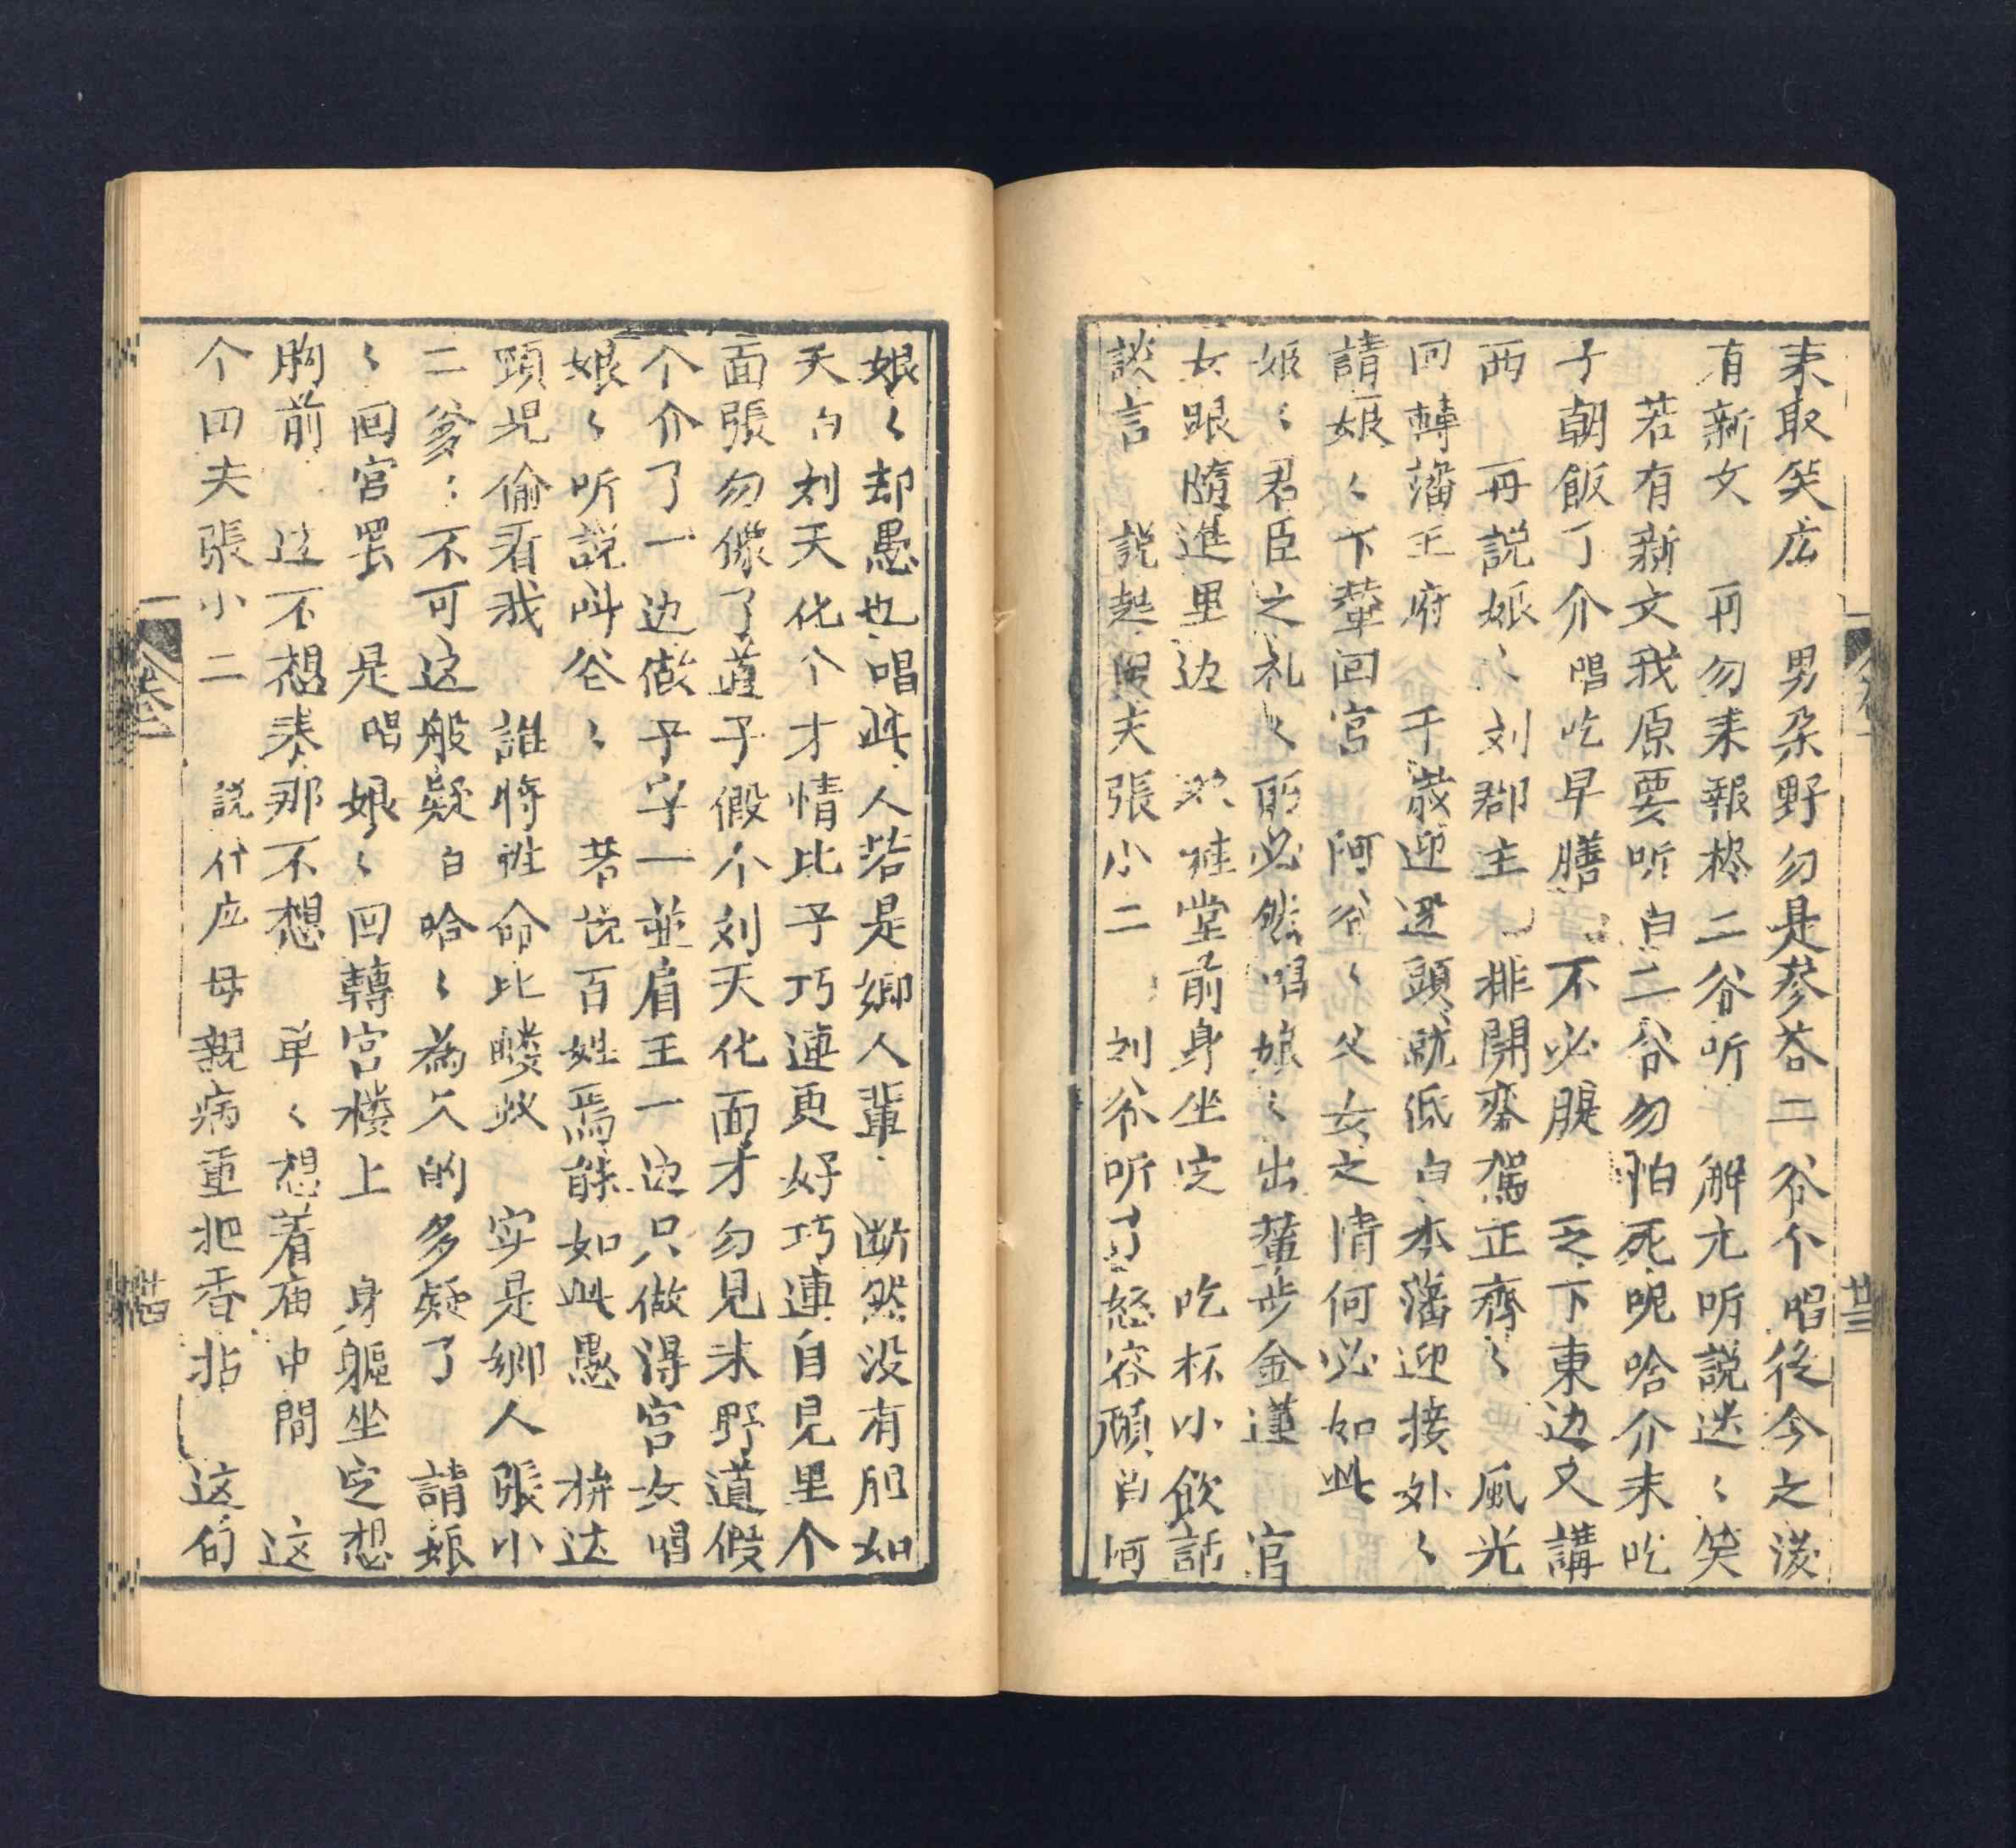 来取笑庅　男朶野勿是爹荅二爷个唱後今之後
有新文　再勿来報柊二爷听　解尤听説迷〻笑
若有新文我原要听白二爷勿怕死呢唅介末吃
子朝飯了介唱吃早膳　不必腿　乏下東边又講
西　再説娘〻刘郡主　排開銮駕正齊〻　風光
回轉藩王府　千歳迎迓頭就低白本藩迎接处〻
請娘〻下輦回宮　阿爷〻父女之情何必如此
娘〻君臣之礼〻所必然唱娘〻出輦步金蓮　官
女跟隨進里边　堂前身坐定　吃杯小飲話
談言　説起男夫張小二　刘爷听了怒容顔白阿
卷二
廿三
娘〻却愚也唱此人若是鄉人輩　断然没有胆如
天白刘天化个才情比子巧連更好巧連自見里个
面張勿像了道子假个刘天化面才勿見末野道假
个介了一边做子字一並肩王一边只做得宮女唱
娘〻听説呌爷〻　若説百姓焉能如此愚　拚达
頸児偷看我　誰將性命比螻蚁　实是鄉人張小
二爹〻不可这般疑白唅〻為人的多疑了　請娘
〻回宮罢　是唱娘〻回轉宮楼上　身軀坐定想
胸前　这不想来那不想　单〻想着庙中間　这
个囬夫張小二　説什庅母親病重把香拈　这句
卷二
廿四